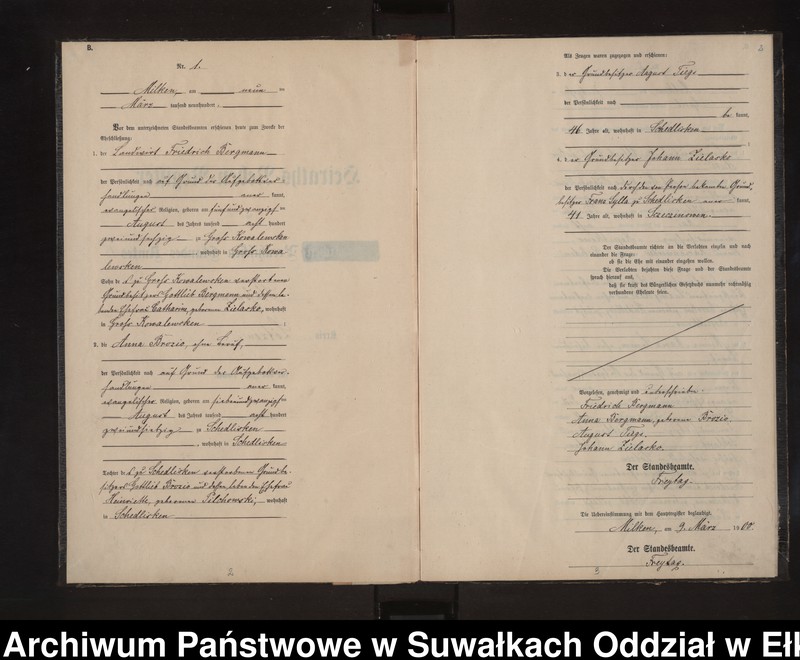 B.
Nr. 1.
Milken, am neun ten
März tausend neunhundert
Vor dem unterzeichneten Standesbeamten erschienen heute zum Zwecke der
Eheschließung:
1. der Landwirt Friedrich Bergmann
der Persönlichkeit nach auf Grund des Aufgebotsver-
handlungen aner kannt,
evangelischer Religion, geboren am fünfundzwanzigsten
August des Jahres tausend acht hundert
zweiundsechzig zu Groß Kowalewsken
, wohnhaft in Groß Kowa
lewsken
Sohn des zu Groß Kowalewsken verstorbenen
Grundbesitzers Gottlieb Bergmann und dessen le-
benden Ehefrau Catharina, geborenen Zielasko, wohnhaft
in Groß Kowalewsken ;
2. die Anna Brozio, ohne Beruf,
der Persönlichkeit nach auf Grund des Aufgebotsver-
handlungen aner kannt,
evangelischer Religion, geboren am siebenundzwanzigsten
August des Jahres tausend acht hundert
zweiundsiebzig zu Schedlisken
, wohnhaft in Schedlisken
Tochter des zu Schedlisken verstorbenen Grundbe-
sitzers Gottlieb Brozio und dessen lebenden Ehefrau
Heinriette, geborenen Pilchowski, wohnhaft
in Schedlisken
2
3
Als Zeugen waren zugezogen und erschienen:
3. der Grundbesitzer August Tiegs
der Persönlichkeit nach
be kannt,
46 Jahre alt, wohnhaft in Schedlisken
;
4. der Grundbesitzer Johann Zielasko
der Persönlichkeit nach durch den von Person bekannten Grund-
besitzer Franz Sylla zu Schedlisken aner kannt,
41 Jahre alt, wohnhaft in Sczeczinowen
Der Standesbeamte richtete an die Verlobten einzeln und nach
einander die Frage:
ob sie die Ehe mit einander eingehen wollen.
Die Verlobten bejahten diese Frage und der Standesbeamte
sprach hierauf aus,
daß sie kraft des Bürgerlichen Gesetzbuchs nunmehr rechtmäßig
verbundene Eheleute seien.
Vorgelesen, genehmigt und unterschrieben
Friedrich Bergmann
Anna Bergmann, geborene Brozio.
August Tiegs.
Johann Zielasko.
Der Standesbeamte.
Freytag.
Die Uebereinstimmung mit dem Hauptregister beglaubigt.
Milken, am 9. März 1900.
Der Standesbeamte.
Freytag.
3
Archiwum Państwowe w Suwałkach Oddział w Ełk